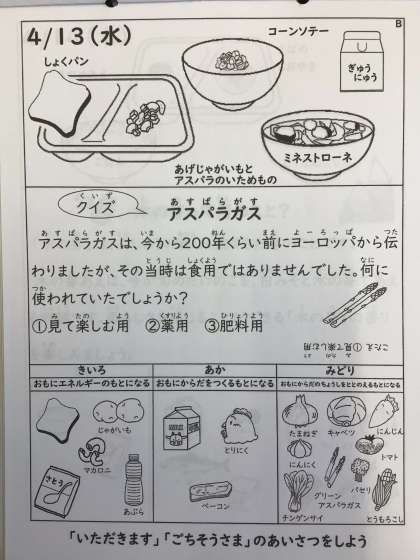 B
4/13(水)
しょくパン
コーンソテー
ぎゅう
にゅう
あげじゃがいもと
アスパラのいためもの
ミネストローネ
くいず
クイズ
あすぱらがす
アスパラガス
あすぱらがす いま ねん まえ よーろっぱ つた
アスパラガスは、今から200年くらい前にヨーロッパから伝
とうじ しょくよう なに
わりましたが、その当時は食用ではありませんでした。何に
つか
使われていたでしょうか?
み たの よう くすりよう ひりょうよう
①見て楽しむ用 ②薬用 ③肥料用
こたえ ①見て楽しむ用
きいろ
おもにエネルギーのもとになる
じゃがいも
マカロニ
さとう
あぶら
あか
おもにからだをつくるもとになる
とりにく
ベーコン
みどり
おもにからだのちょうしをととのえるもとになる
たまねぎ キャベツ にんじん
にんにく トマト
グリーン
アスパラガス
パセリ
チンゲンサイ とうもろこし
「いただきます」「ごちそうさま」のあいさつをしよう